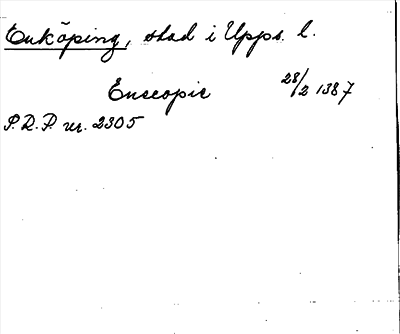 Enköping, stad i Upps. l.
Enscopie 28/2 1387
S.R.P. nr. 2305